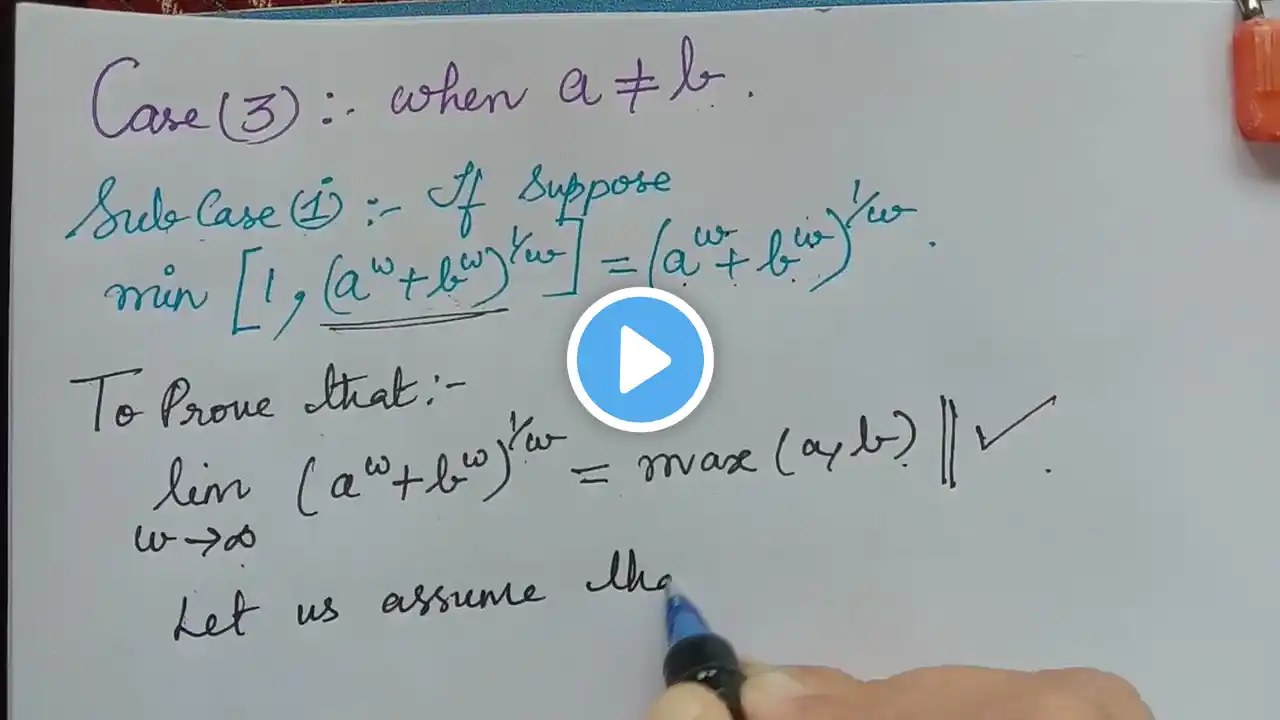 Case (3) :- when a ≠ b.
SubCase (i) :- If suppose
min [1, (a^w + b^w)^1/w] = (a^w + b^w)^1/w.
To Prove that :-
lim (a^w + b^w)^1/w = max (a, b) || ✓ .
w → ∞
Let us assume tha